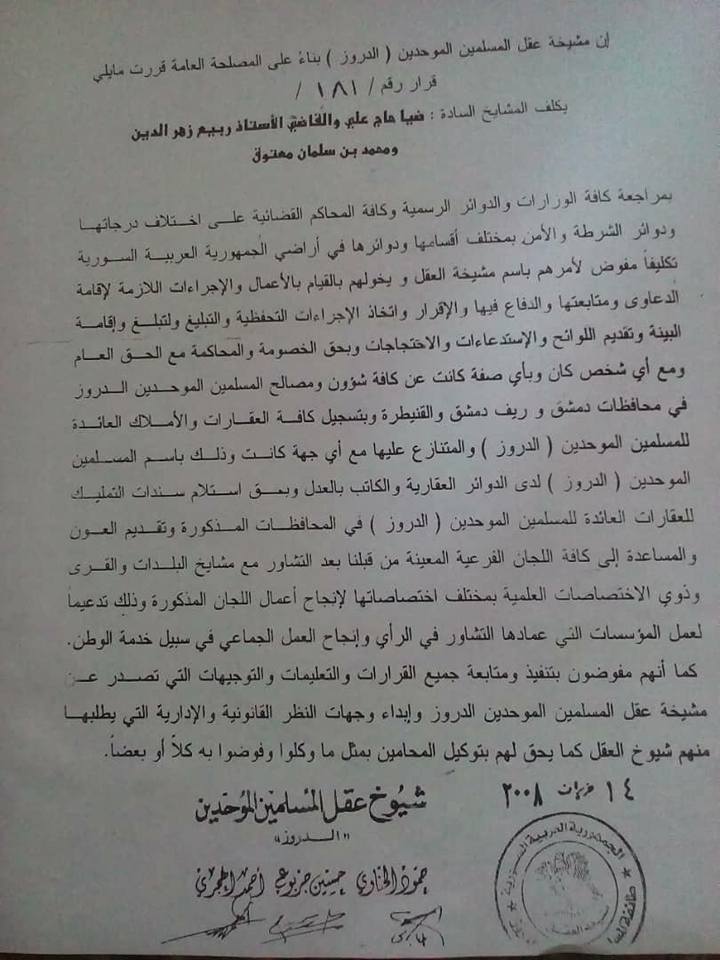 إن مشيخة عقل المسلمين الموحدين ( الدروز ) بناءً على المصلحة العامة قررت مايلي
قرار رقم / ١٨١ /
يكلف المشايخ السادة : ضيا حاج علي والقاضي الأستاذ ربيع زهر الدين
ومحمد بن سلمان معتوق
بمراجعة كافة الوزارات والدوائر الرسمية وكافة المحاكم القضائية على اختلاف درجاتها
ودوائر الشرطة والأمن بمختلف أقسامها ودوائرها في أراضي الجمهورية العربية السورية
تكليفاً مفوض لأمرهم باسم مشيخة العقل و يخولهم بالقيام بالأعمال والإجراءات اللازمة لإقامة
الدعاوى ومتابعتها والدفاع فيها والإقرار واتخاذ الإجراءات التحفظية والتبليغ ولتبلغ وإقامة
البينة وتقديم اللوائح والإستدعاءات والاحتجاجات وبحق الخصومة والمحاكمة مع الحق العام
ومع أي شخص كان وبأي صفة كانت عن كافة شؤون ومصالح المسلمين الموحدين الدروز
في محافظات دمشق و ريف دمشق والقنيطرة وبتسجيل كافة العقارات والأملاك العائدة
للمسلمين الموحدين ( الدروز ) والمتنازع عليها مع أي جهة كانت وذلك باسم المسلمين
الموحدين ( الدروز ) لدى الدوائر العقارية والكاتب بالعدل وبحق استلام سندات التمليك
للعقارات العائدة للمسلمين الموحدين ( الدروز ) في المحافظات المذكورة وتقديم العون
والمساعدة إلى كافة اللجان الفرعية المعينة من قبلنا بعد التشاور مع مشايخ البلدات والقرى
وذوي الاختصاصات العلمية بمختلف اختصاصاتها لإنجاح أعمال اللجان المذكورة وذلك تدعيماً
لعمل المؤسسات التي عمادها التشاور في الرأي وإنجاح العمل الجماعي في سبيل خدمة الوطن.
كما أنهم مفوضون بتنفيذ ومتابعة جميع القرارات والتعليمات والتوجيهات التي تصدر عن
مشيخة عقل المسلمين الموحدين الدروز وإبداء وجهات النظر القانونية والإدارية التي يطلبها
منهم شيوخ العقل كما يحق لهم بتوكيل المحامين بمثل ما وكلوا وفوضوا به كلاً أو بعضاً.
١٤ حزيران ٢٠٠٨
شيوخ عقل المسلمين الموحدين
"الدروز"
حمود الحناوي حسين جربوعي أحمد الهجري
الجمهورية العربية السورية